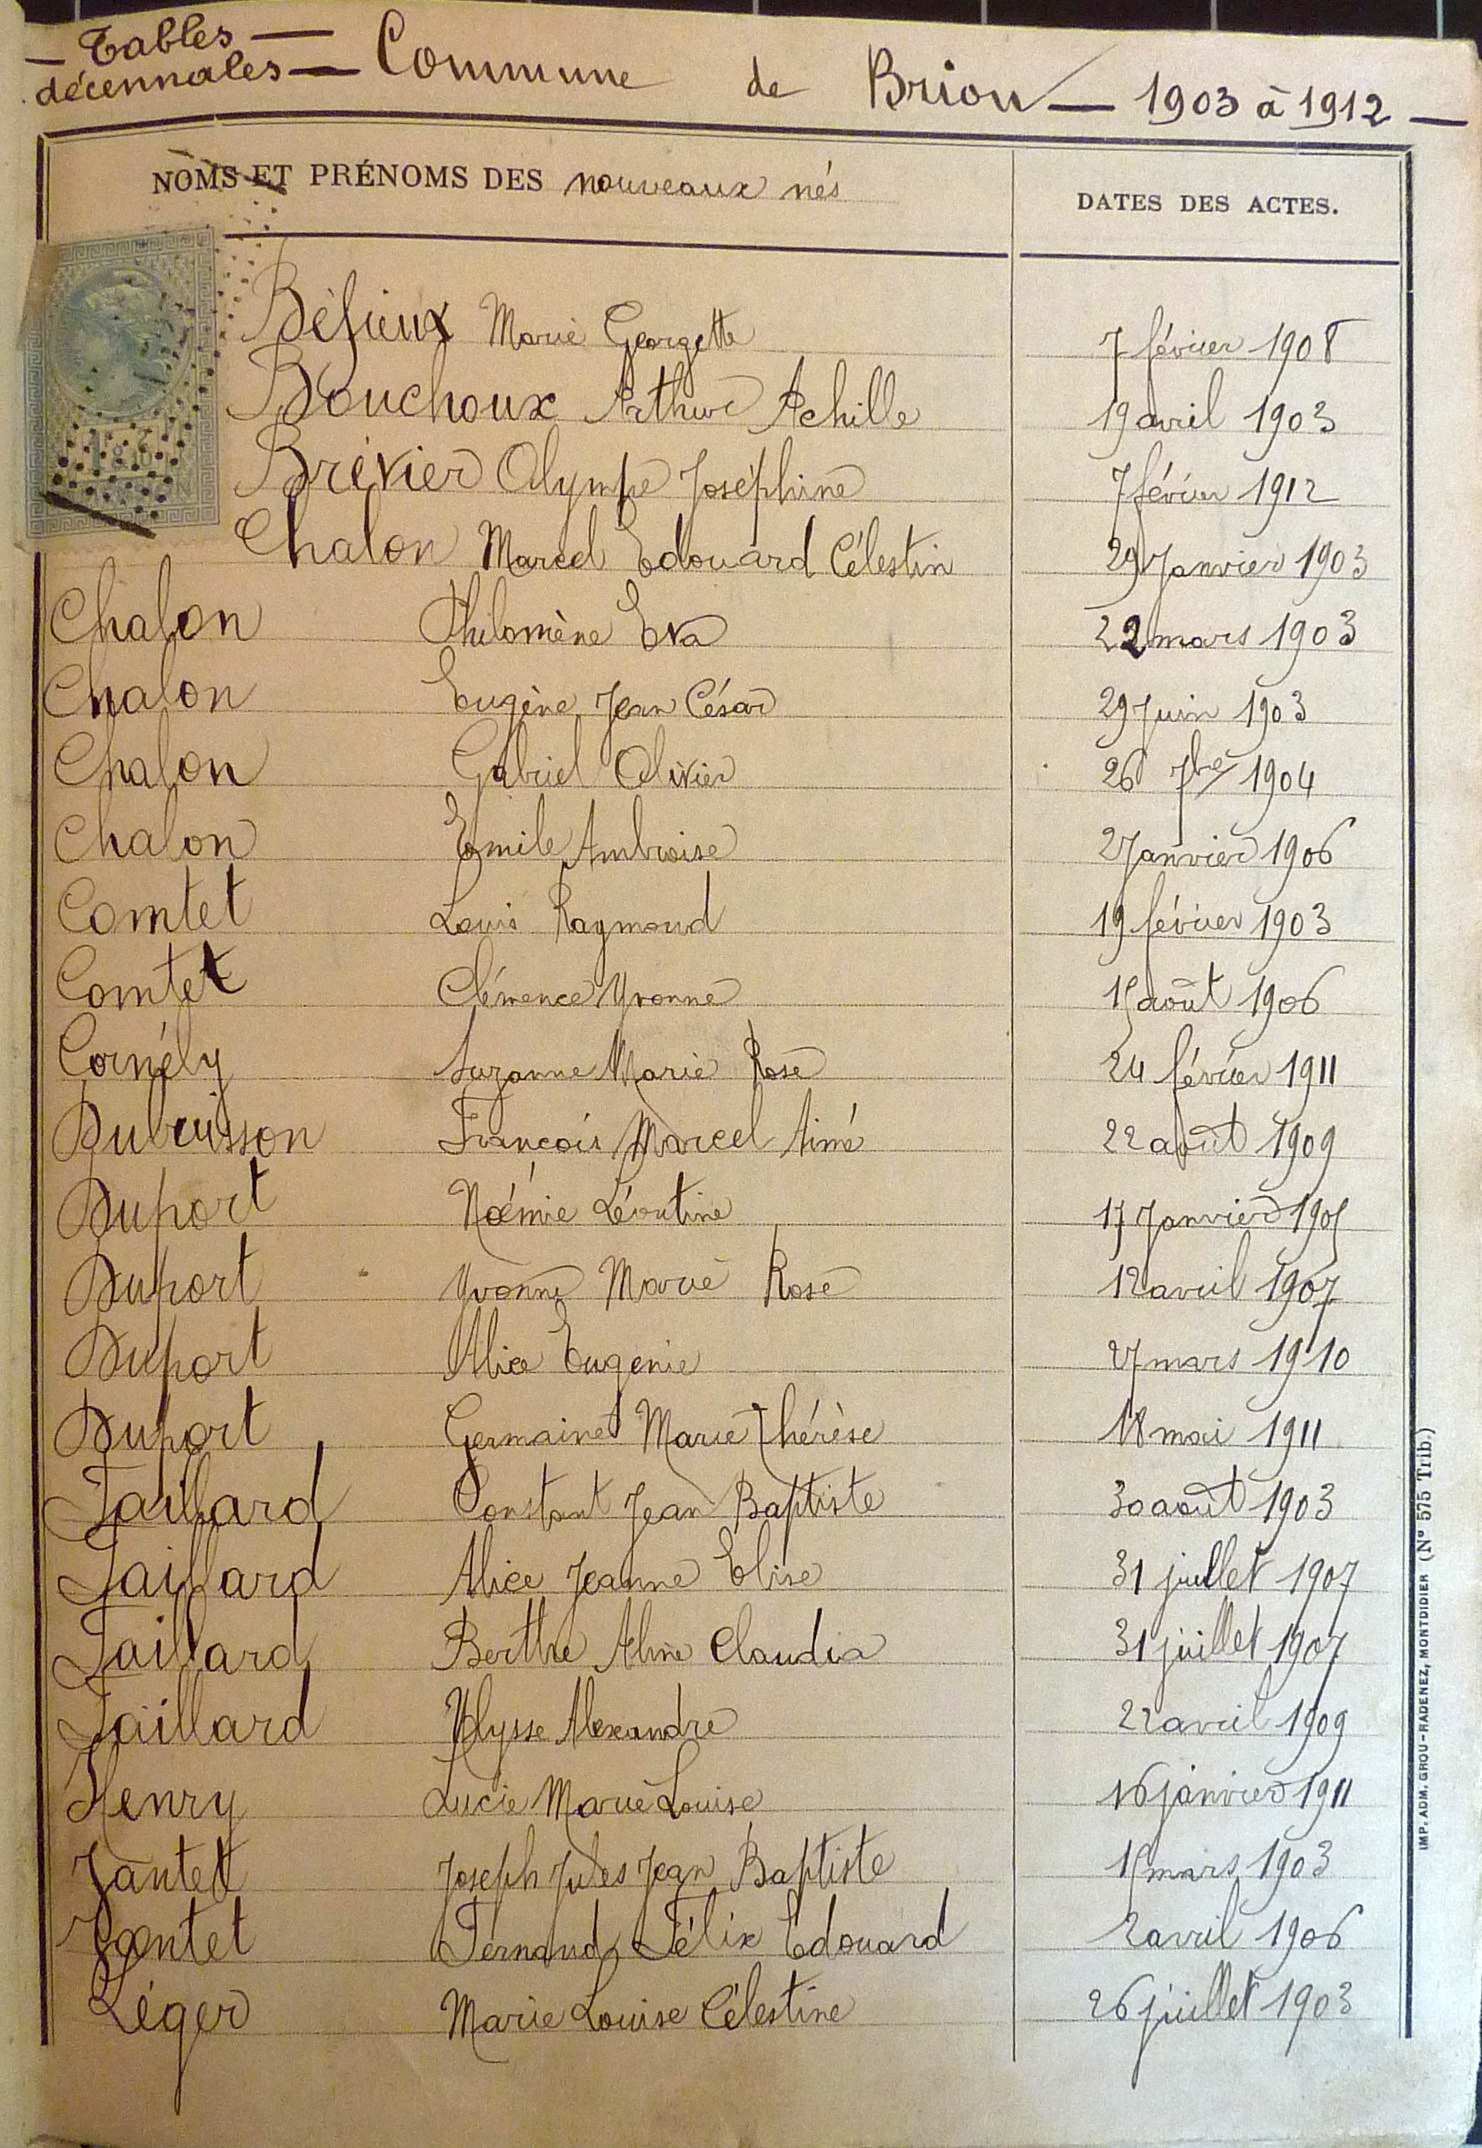 Tables décennales — Commune de Brion — 1903 à 1912 —
NOMS ET PRÉNOMS DES nouveaux nés DATES DES ACTES.
Béfieux Marie Georgette 7 février 1908
Bouchoux Arthur Achille 19 avril 1903
Brévier Olympe Joséphine 7 février 1912
Chalon Marcel Edouard Célestin 29 Janvier 1903
Chalon Philomène Eva 22 mars 1903
Chalon Eugène Jean César 29 Juin 1903
Chalon Gabriel Olivier 26 7bre 1904
Chalon Emile Ambroise 2 Janvier 1906
Comtet Louis Raymond 19 février 1903
Comtet Clémence Yvonne 15 août 1906
Cornély Suzanne Marie Rose 24 février 1911
Dubuisson François Marcel Aimé 22 août 1909
Duport Noémie Léontine 17 Janvier 1905
Duport Yvonne Marie Rose 12 avril 1907
Duport Alice Eugenie 27 mars 1910
Duport Germaine Marie Thérèse 18 mai 1911
Faillard Constant Jean Baptiste 30 août 1903
Faillard Alice Jeanne Elise 31 juillet 1907
Faillard Berthe Aline Claudia 31 juillet 1907
Faillard Ulysse Alexandre 22 avril 1909
Henry Lucie Marie Louise 16 janvier 1911
Jantet Joseph Jules Jean Baptiste 15 mars 1903
Jantet Fernand Félix Edouard 2 avril 1906
Léger Marie Louise Célestine 26 juillet 1903
IMP. ADM. GROU-RADENEZ, MONTDIDIER (N° 575 Trib.)